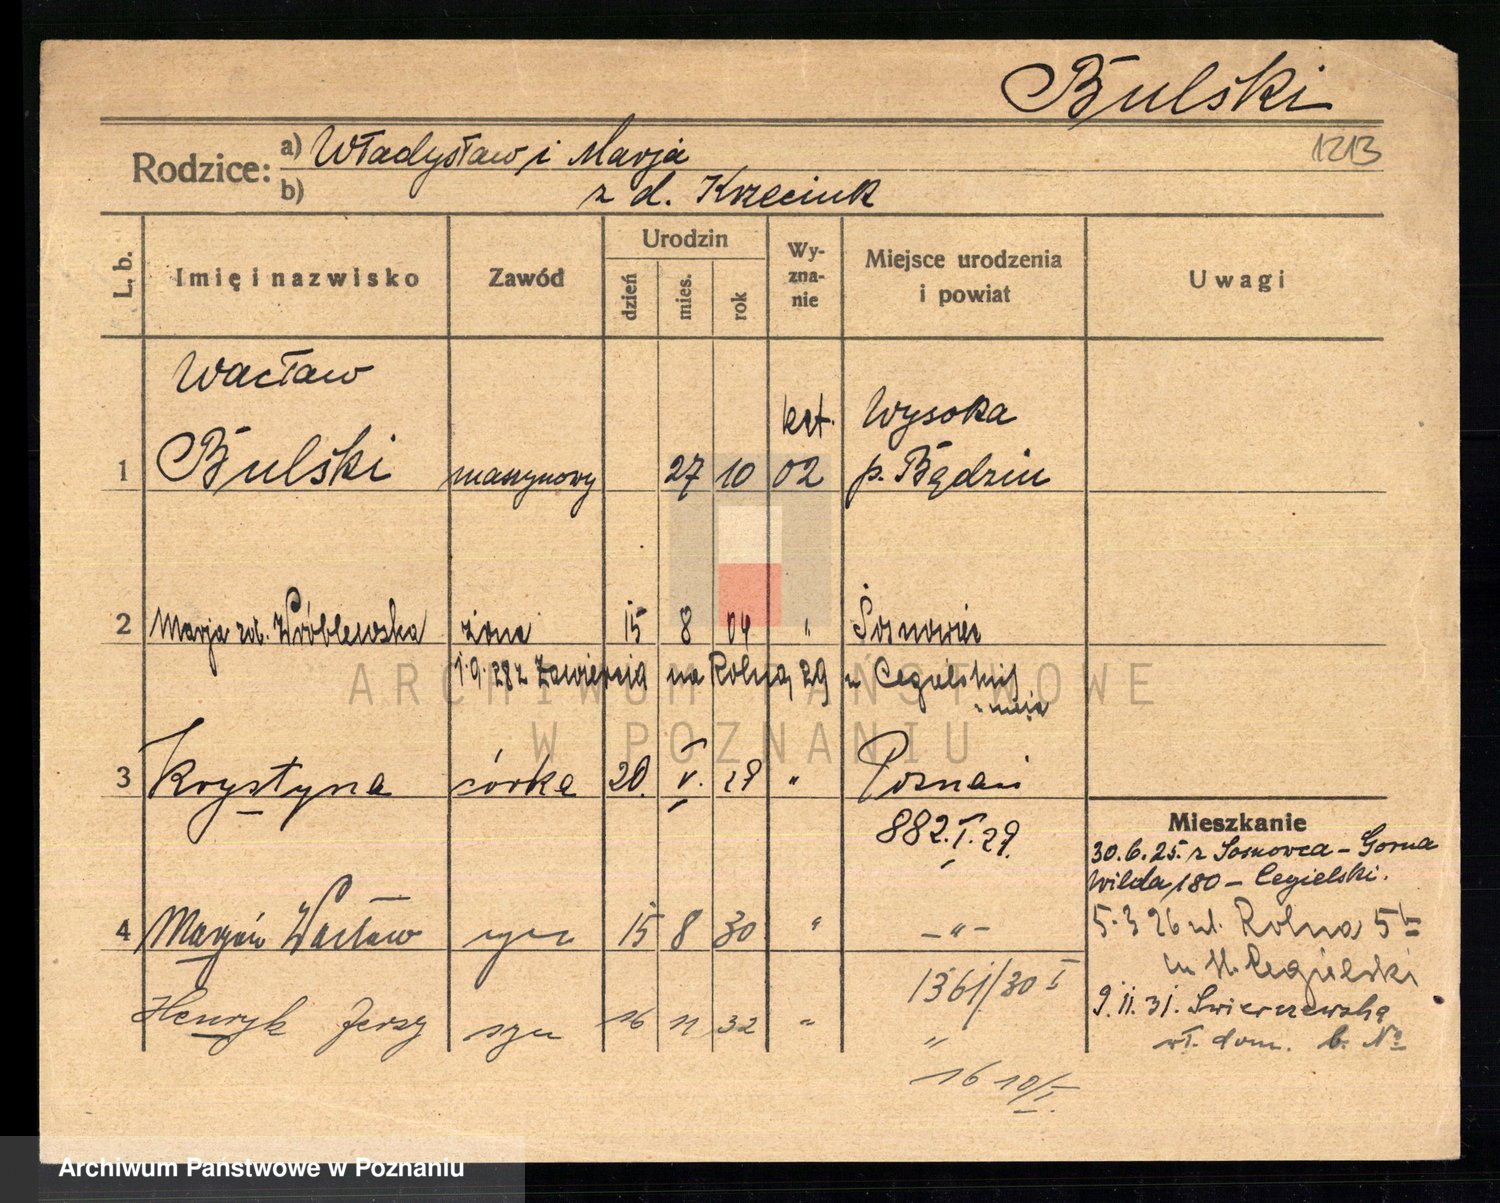 Bulski
1213
Rodzice: a) Władysław i Marja
b) z d. Krzeciuk
L. b.
Imię i nazwisko
Zawód
Urodzin
dzień
mies.
rok
Wy-
zna-
nie
Miejsce urodzenia
i powiat
Uwagi
Wacław
kat. Wysoka
1 Bulski maszynowy 27 10 02 p. Będzin
2 Marja rob. Wróblewska żona 15 8 04 " Sosnowiec
1.9.28 z Zawiercia na Rolna 29 u Cegielskij
3 Krystyna córka 20. V. 29 " Poznań
882.I.29.
Mieszkanie
30.6.25. z Sosnowca – Gorna
Wilda 180 – Cegielski.
4 Marjan Wacław syn 15 8 30 " –"–
5.3 26 ul. Rolna 5
u H. Cegielski
1361/30 I
9.11.31. Swierczewską
Henryk Jerzy syn 16 11 32 " "
wł. dom. b. No
1610/I.
ARCHIWUM PAŃSTWOWE
W POZNANIU
Archiwum Państwowe w Poznaniu